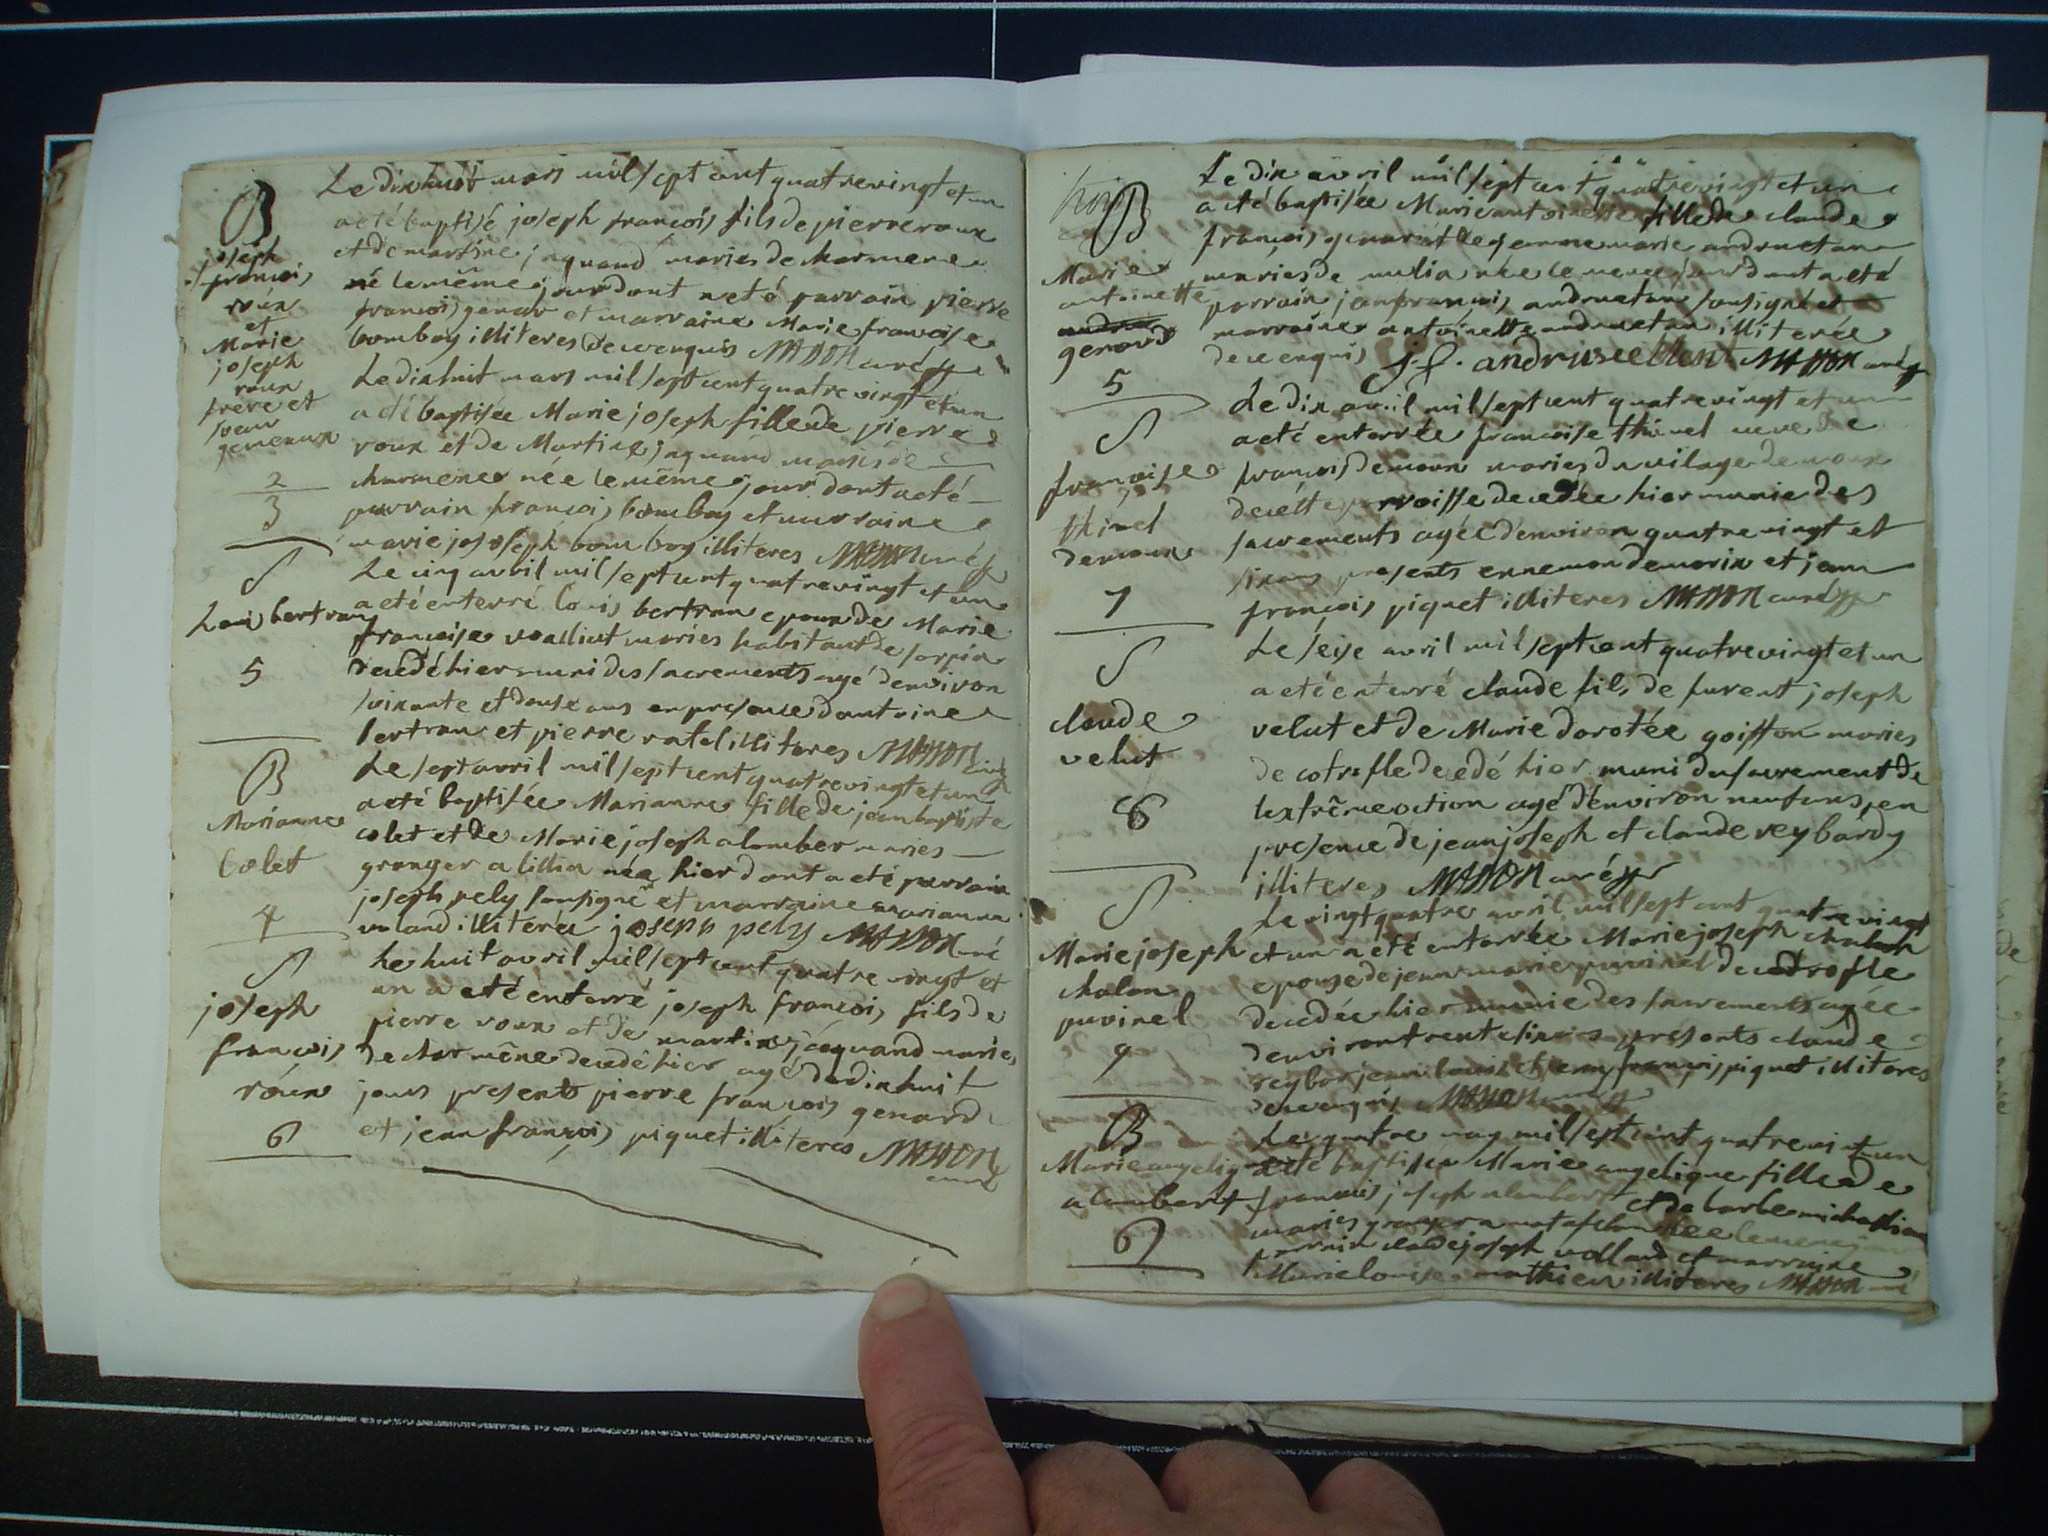 B
joseph
françois
roux
et
Marie
joseph
roux
frère et
soeur
gemeaux
2
3
Le dix huit mars mil sept cent quatre vingt et un
a eté baptisé joseph françois fils de pierre roux
et de martine jaquand maries de charmene
né le même jour dont a eté parrain pierre
françois genard et marraine Marie francoise
bomboy illiteres de ce enquis MASSON curé
Le dix huit mars mil sept cent quatre vingt et un
a eté baptisée Marie joseph fille de pierre
roux et de Martine jaquand maries de
charmene née le même jour dont a eté
parrain françois bomboy et marraine
marie joseph bomboy illiteres MASSON curé
S
Loui bertran
5
Le cinq avril mil sept cent quatre vingt et un
a eté enterré Louis bertran epoux de Marie
francoise vualliut maries habitant de
decedé hier muni des sacrements agé denviron
soixante et douse ans en presence dantoine
bertran et pierre ratel illiteres MASSON curé
B
Marianne
Colet
4
Le sept avril mil sept cent quatre vingt et un
a eté baptisée Marianne fille de jean baptiste
colet et de Marie joseph alomber maries
granger a lillia née hier dont a eté parrain
joseph pely sousigné et marraine marianne
voland illiterée joseph pely MASSON curé
S
joseph
francois
roux
6
Le huit avril mil sept cent quatre vingt et
un a eté enterré joseph françois fils de
pierre roux et de martine jaquand maries
de charmêne decedé hier agé de dix huit
jours presents pierre françois genard
et jean françois piquet illiteres MASSON
curé
B
Marie
antoinette
genard
5
Le dix avril mil sept cent quatre vingt et un
a eté baptisée Marie antoinette fille de claude
françois genard et de jeanne marie andruetan
maries de nulia née le meme jour dont a eté
parrain jean françois andruetan sousigné et
marraine antoinette andruetan illiterée
de ce enquis j.f. MASSON curé
S
françoise
thivel
demoux
7
Le dix avril mil sept cent quatre vingt et un
a eté enterrée francoise thivel veuve de
françois demoux maries du vilage de
de cette parroisse decedée hier munie des
sacrements agée denviron quatre vingt et
six ans presents ennemon demorix et jean
françois piquet illiteres MASSON curé
S
claude
velut
8
Le seise avril mil sept cent quatre vingt et un
a eté enterré claude fils de furent joseph
velut et de Marie dorotée goiffon maries
de cotrofle decedé hier muni du sacrement de
lextrême onction agé denviron neuf ans en
presence de jean joseph et claude reybardy
illiteres MASSON curé
S
Marie joseph
chalon
puvinel
9
Le vingt quatre avril mil sept cent quatre vingt
et un a eté enterrée Marie joseph chalon
epouse de jean marie puvinel de cotrofle
decedée hier munie des sacrements agée
denviron trente six ans presents claude
reybor jean louis et jean françois piquet illiteres
de ce enquis MASSON curé
B
Marie angelique
alombert
6
Le quatre may mil sept cent quatre vi et un
a eté baptisée Marie angelique fille de
francois joseph alombert et de barbe
maries granger a née le meme jour
parrain claude joseph volland et marraine
Marie louise mathieu illiteres MASSON curé